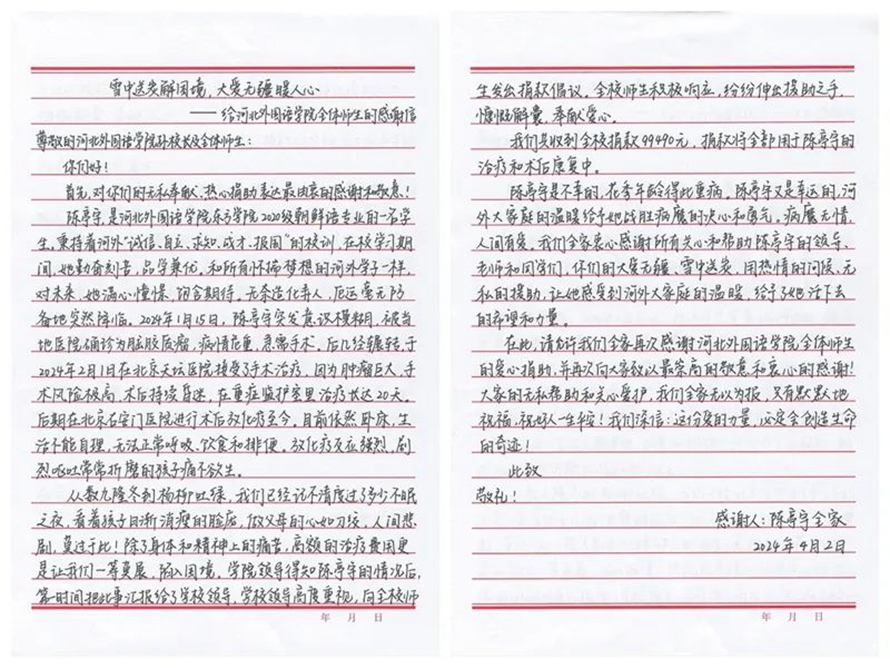 雪中送炭解困境，大爱无疆暖人心
——给河北外国语学院全体师生的感谢信
尊敬的河北外国语学院孙校长及全体师生：
你们好！
首先，对你们的无私奉献、热心捐助表达最由衷的感谢和敬意！
陈亭宇，是河北外国语学院东方学院2020级朝鲜语专业的一名学
生。秉持着河外“诚信、自立、求知、成才、报国”的校训，在校学习期
间，她勤奋刻苦，品学兼优，和所有怀揣梦想的河外学子一样，
对未来，她满心憧憬，饱含期待。无奈造化弄人，厄运毫无防
备地突然降临。2024年1月15日，陈亭宇突发意识模糊，被当
地医院确诊为脑胶质瘤，病情危重，急需手术。后几经辗转，于
2024年2月1日在北京天坛医院接受了手术治疗，因为肿瘤巨大，手
术风险极高，术后持续昏迷，在重症监护室里治疗长达20天。
后期在北京右安门医院进行术后放化疗至今，目前依然卧床，生
活不能自理，无法正常呼吸、饮食和排便。放化疗反应强烈，剧
烈呕吐常常折磨的孩子痛不欲生。
从数九隆冬到杨柳吐绿，我们已经记不清度过了多少不眠
之夜，看着孩子日渐消瘦的脸庞，做父母的心如刀绞，人间悲
剧，莫过于此！除了身体和精神上的痛苦，高额的治疗费用更
是让我们一筹莫展，陷入困境。学院领导得知陈亭宇的情况后，
第一时间把此事汇报给了学校领导，学校领导高度重视，向全校师
年 月 日
生发出捐款倡议，全校师生积极响应，纷纷伸出援助之手，
慷慨解囊，奉献爱心。
我们共收到全校捐款99490元，捐款将全部用于陈亭宇的
治疗和术后康复中。
陈亭宇是不幸的，花季年龄得此重病。陈亭宇又是幸运的，河
外大家庭的温暖给予她战胜病魔的决心和勇气。病魔无情，
人间有爱。我们全家衷心感谢所有关心和帮助陈亭宇的领导、
老师和同学们，你们的大爱无疆、雪中送炭，用热情的问候、无
私的援助，让她感受到河外大家庭的温暖，给予了她活下去
的希望和力量。
在此，请允许我们全家再次感谢河北外国语学院全体师生
的爱心捐助，并再次向大家致以最崇高的敬意和衷心的感谢！
大家的无私帮助和关心爱护，我们全家无以为报，只有默默地
祝福，祝好人一生平安！我们深信：这份爱的力量，必定会创造生命
的奇迹！
此致
敬礼！
感谢人：陈亭宇全家
2024年4月2日
年 月 日